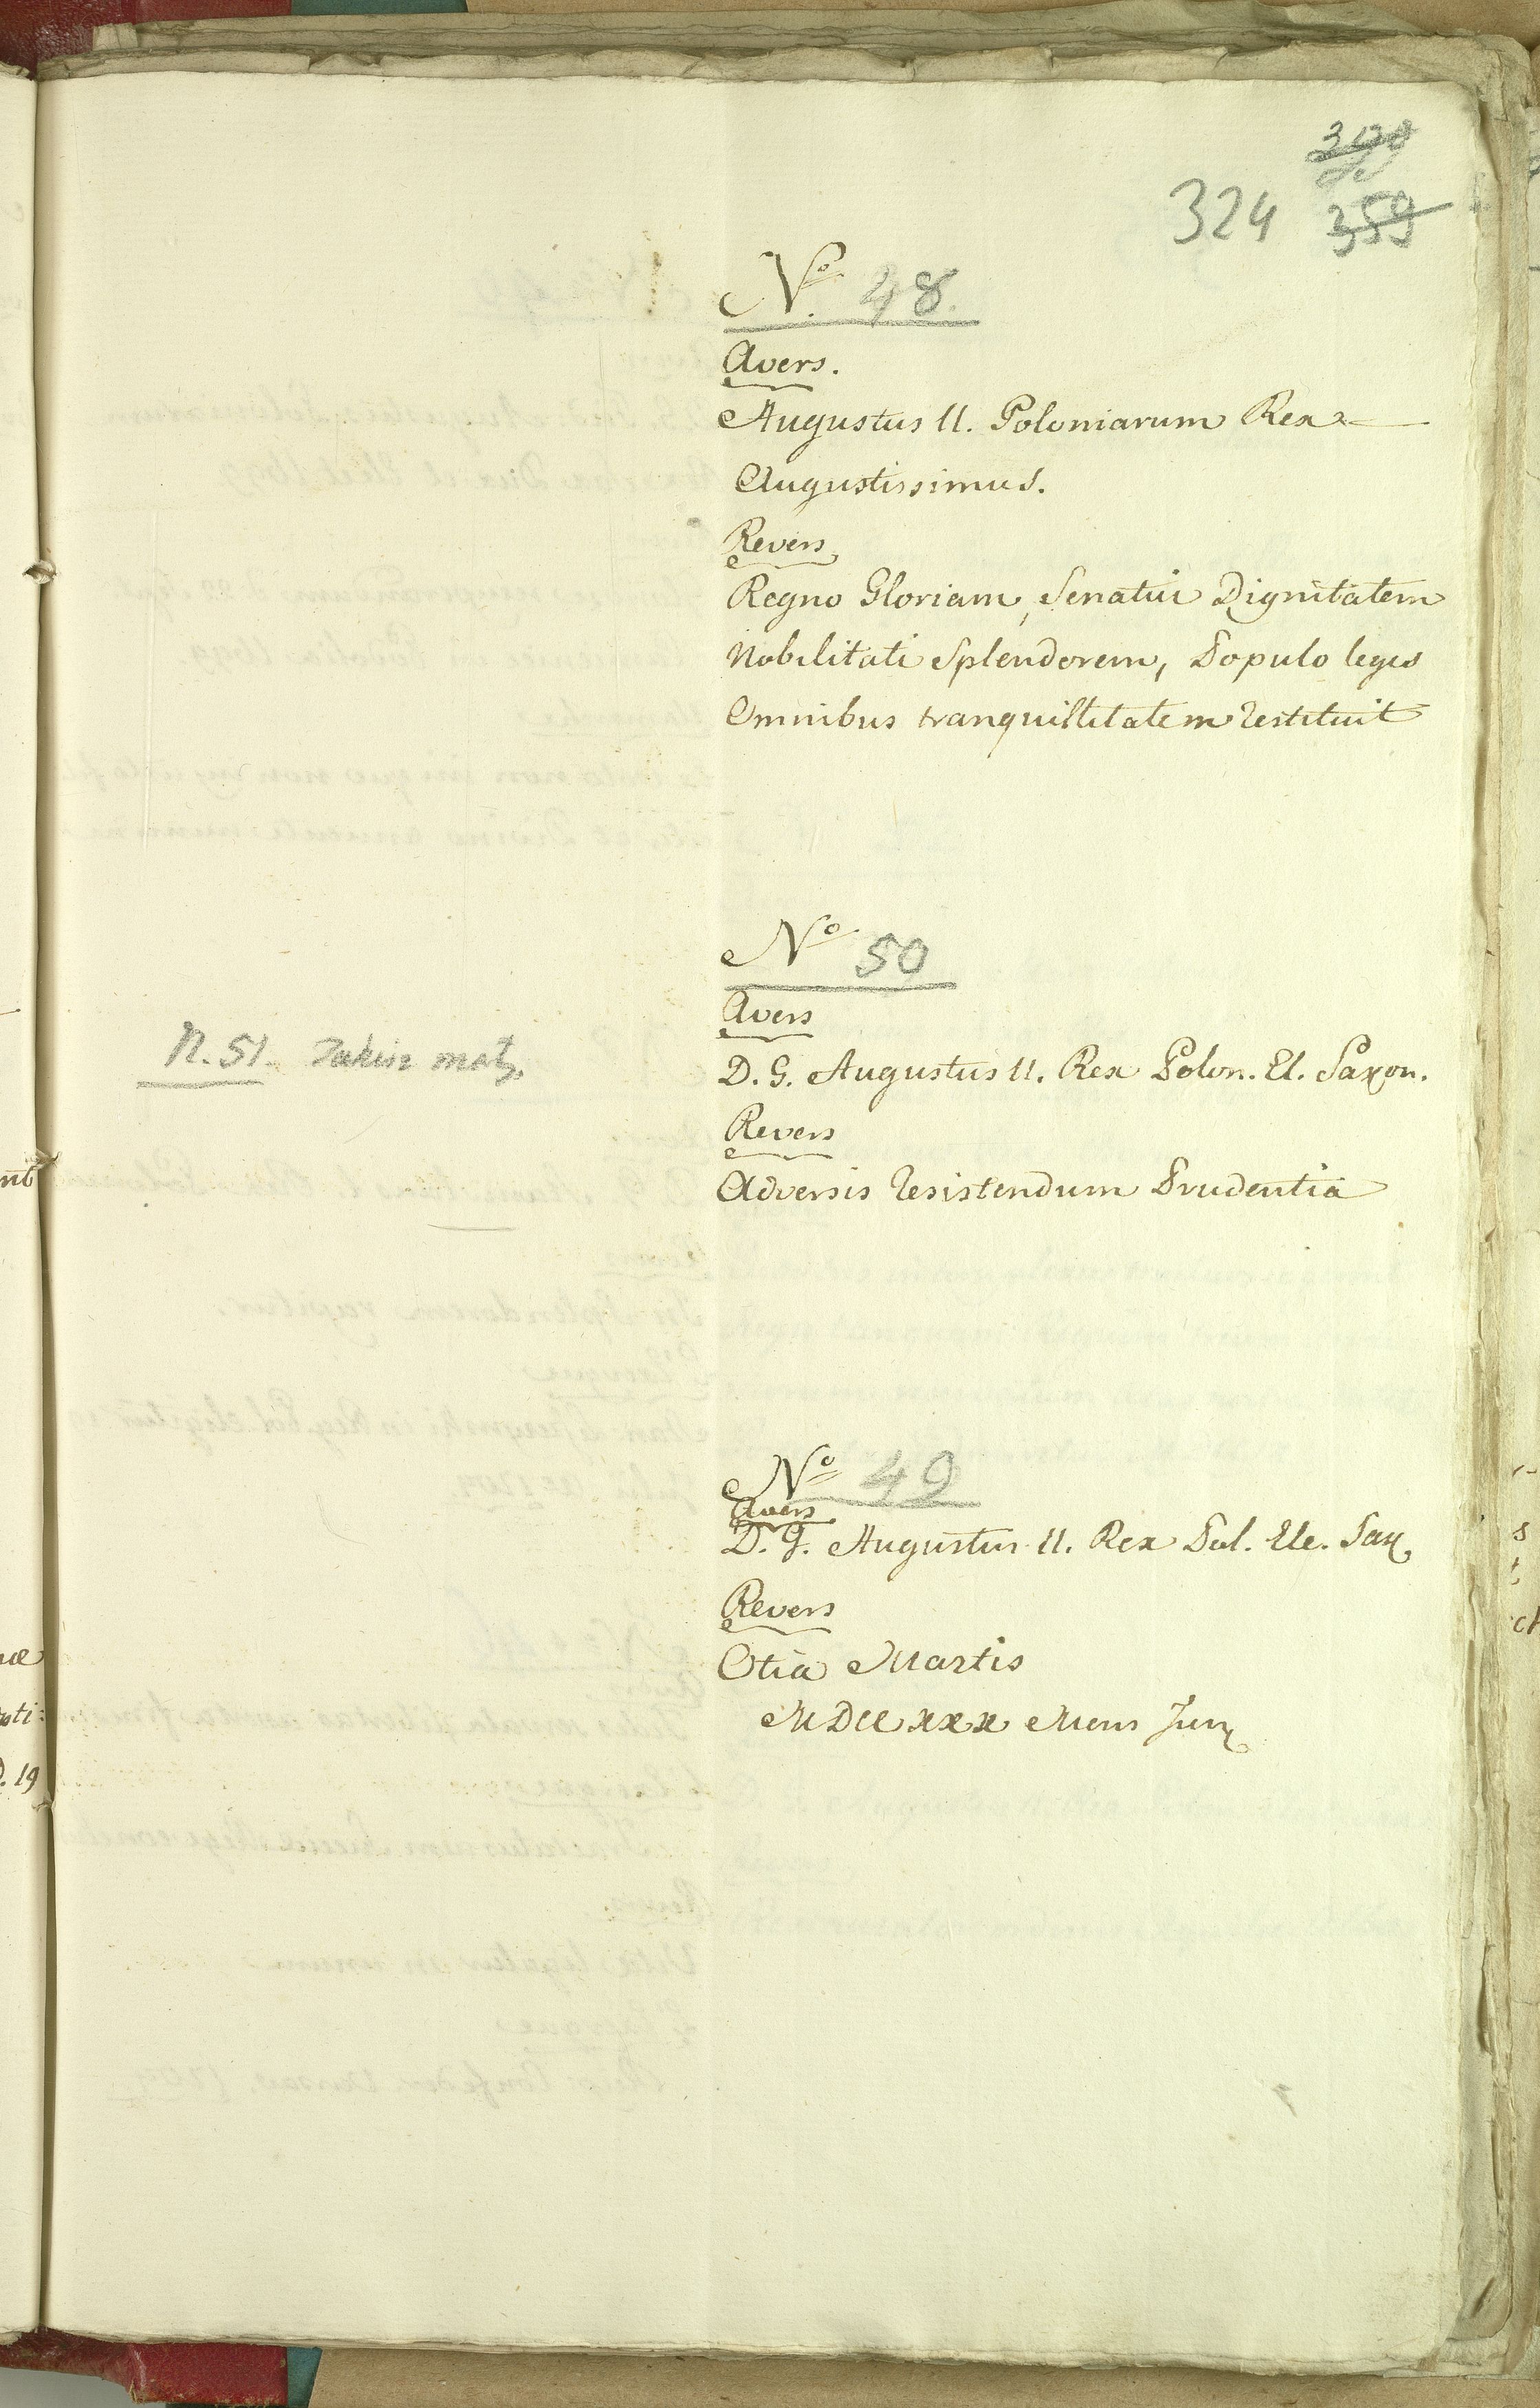 324 359
No. 48.
Avers.
Augustus II. Poloniarum Rex
Augustissimus.
Revers
Regno Gloriam, Senatui Dignitatem
Nobilitati Splendorem, Populo leges
Omnibus tranquillitatem restituit
No 50
Avers
N. 51. Takiż mały.
D. G. Augustus II. Rex Polon. El. Saxon.
Revers
Adversis resistendum Prudentia
No 49
Avers
D. G. Augustus II. Rex Pol. Ele. Sax.
Revers
Otia Martis
MDCCXXX Mens Jun